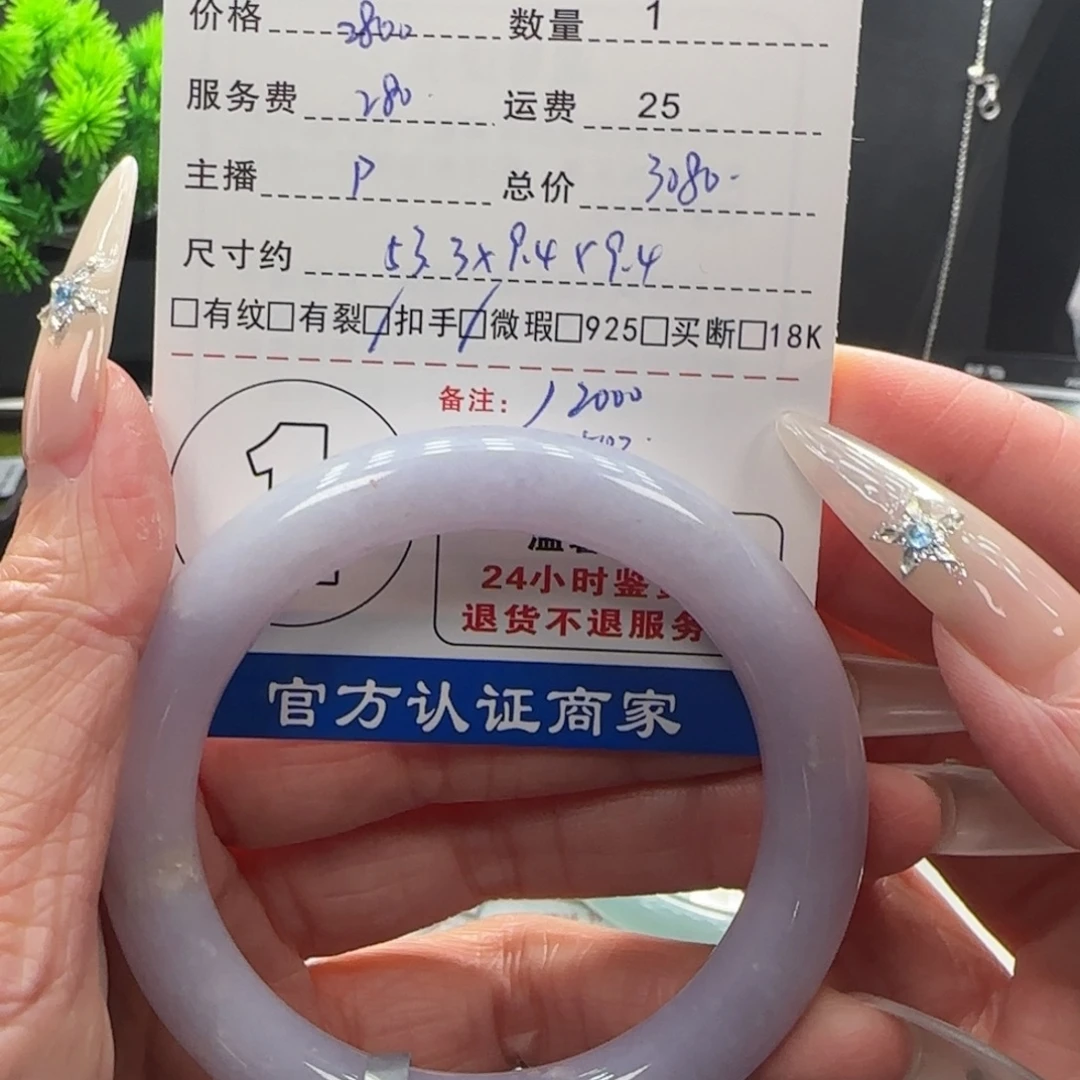 价格 2800 数量 1
服务费 280 运费 25
主播 P 总价 3080
尺寸约 53.3x9.4x9.4
□有纹□有裂□扣手□微瑕□925□买断□18K
备注: /2000
1
24小时鉴
退货不退服务
官方认证商家